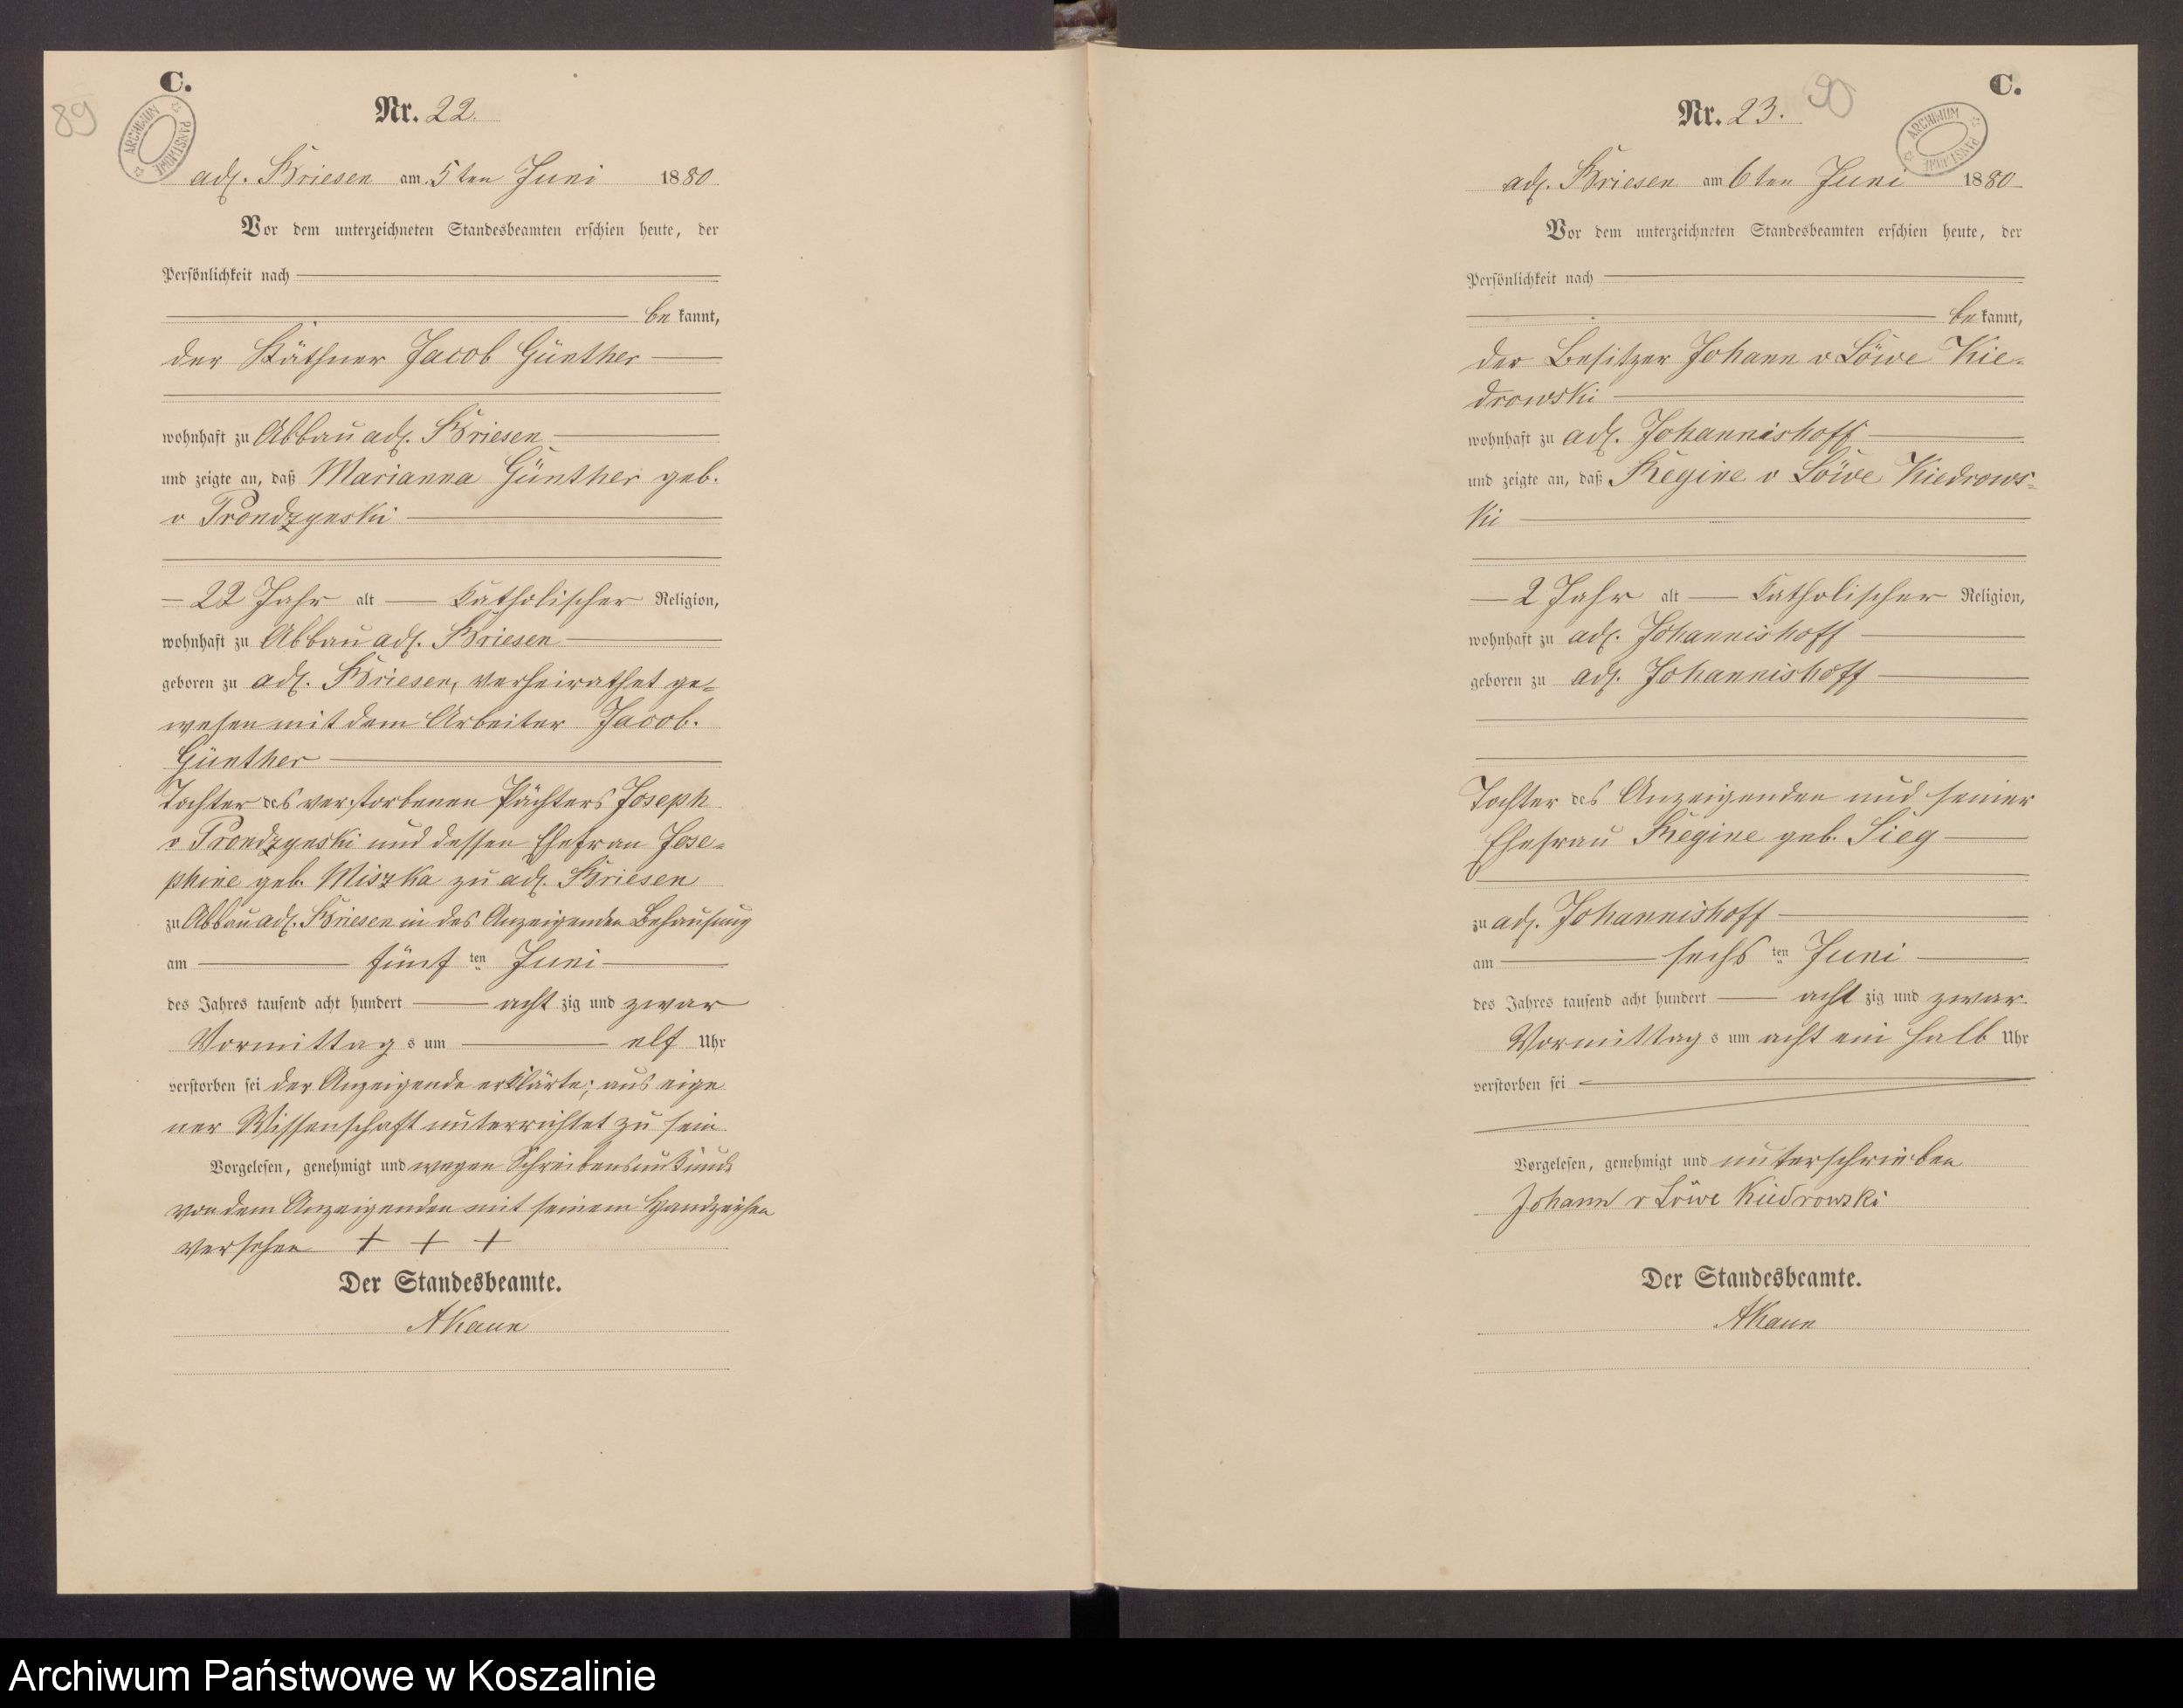 C.
89
ARCHIWUM PAŃSTWOWE
Nr. 22.
adl. Briesen am 5ten Juni 1880
Vor dem unterzeichneten Standesbeamten erschien heute, der
Persönlichkeit nach
be kannt,
der Käthner Jacob Günther
wohnhaft zu Abbau adl. Briesen
und zeigte an, daß Marianna Günther geb.
v Prondzynski
22 Jahr alt Katholischer Religion,
wohnhaft zu Abbau adl. Briesen
geboren zu adl. Briesen, verheirathet ge-
wesen mit dem Arbeiter Jacob
Günther
Tochter des verstorbenen Pächters Joseph
v Prondzynski und dessen Ehefrau Jose-
phine geb. Miszka zu adl. Briesen
zu Abbau adl. Briesen in des Anzeigenden Behausung
am fünf ten Juni
des Jahres tausend acht hundert acht zig und zwar
Vormittag s um elf Uhr
verstorben sei der Anzeigende erklärte; aus eige
ner Wissenschaft unterrichtet zu sein
Vorgelesen, genehmigt und wegen Schreibensunkunde
von dem Anzeigenden mit seinem Handzeichen
versehen + + +
Der Standesbeamte.
AKaun
C.
90
ARCHIWUM PAŃSTWOWE
Nr. 23.
adl. Briesen am 6ten Juni 1880
Vor dem unterzeichneten Standesbeamten erschien heute, der
Persönlichkeit nach
be kannt,
der Besitzer Johann v Löwe Kie-
drowski
wohnhaft zu adl. Johannishoff
und zeigte an, daß Regine v Löwe Kiedrows-
ki
2 Jahr alt Katholischer Religion,
wohnhaft zu adl. Johannishoff
geboren zu adl. Johannishoff
Tochter des Anzeigenden und seiner
Ehefrau Regine geb. Sieg
zu adl. Johannishoff
am sechs ten Juni
des Jahres tausend acht hundert acht zig und zwar
Vormittag s um acht ein halb Uhr
verstorben sei
Vorgelesen, genehmigt und unterschrieben
Johann v Löwe Kiedrowski
Der Standesbeamte.
AKaun
Archiwum Państwowe w Koszalinie